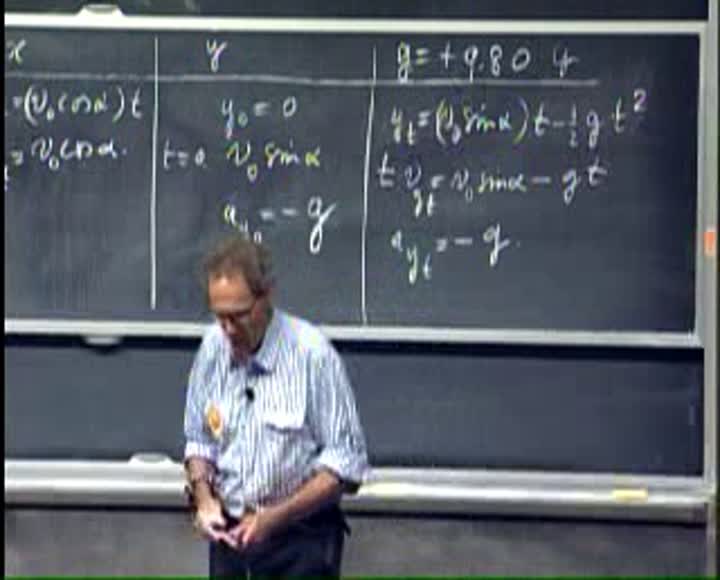 x
=(v₀cosα)t
= v₀cosα.
y
y₀ = 0
t=0 v₀ sinα
a_y₀ = -g
g = +9.80
y_t = (v₀ sinα) t - ½ g t²
t v_yt = v₀ sinα - g t
a_yt = - g.